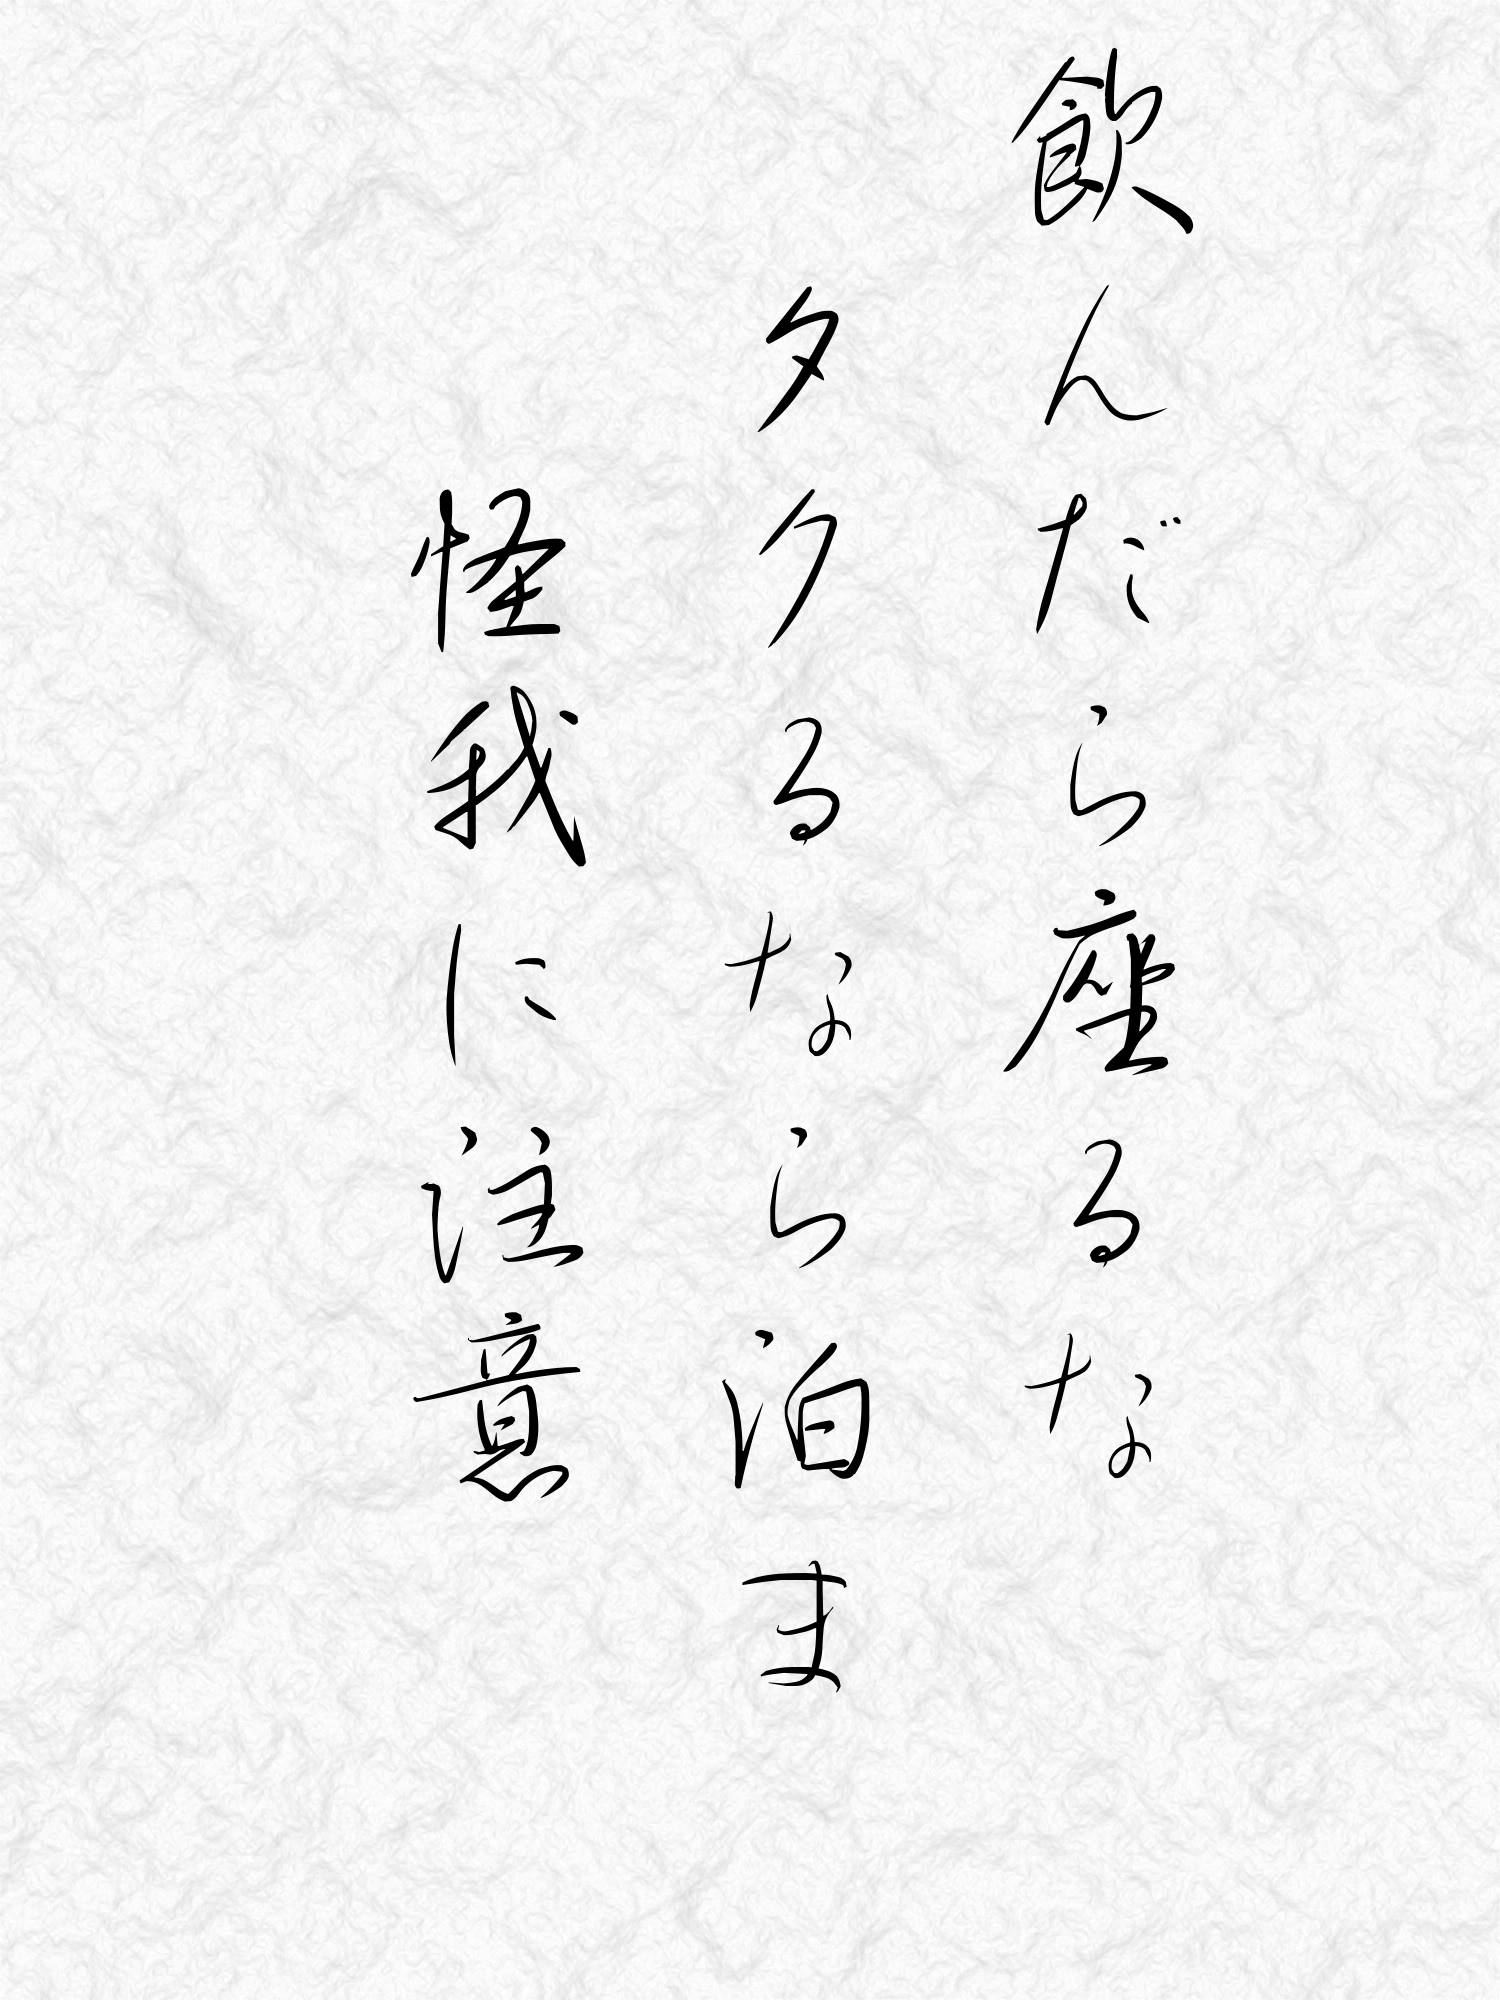 飲んだら座るな
タクるなら泊ま
怪我に注意